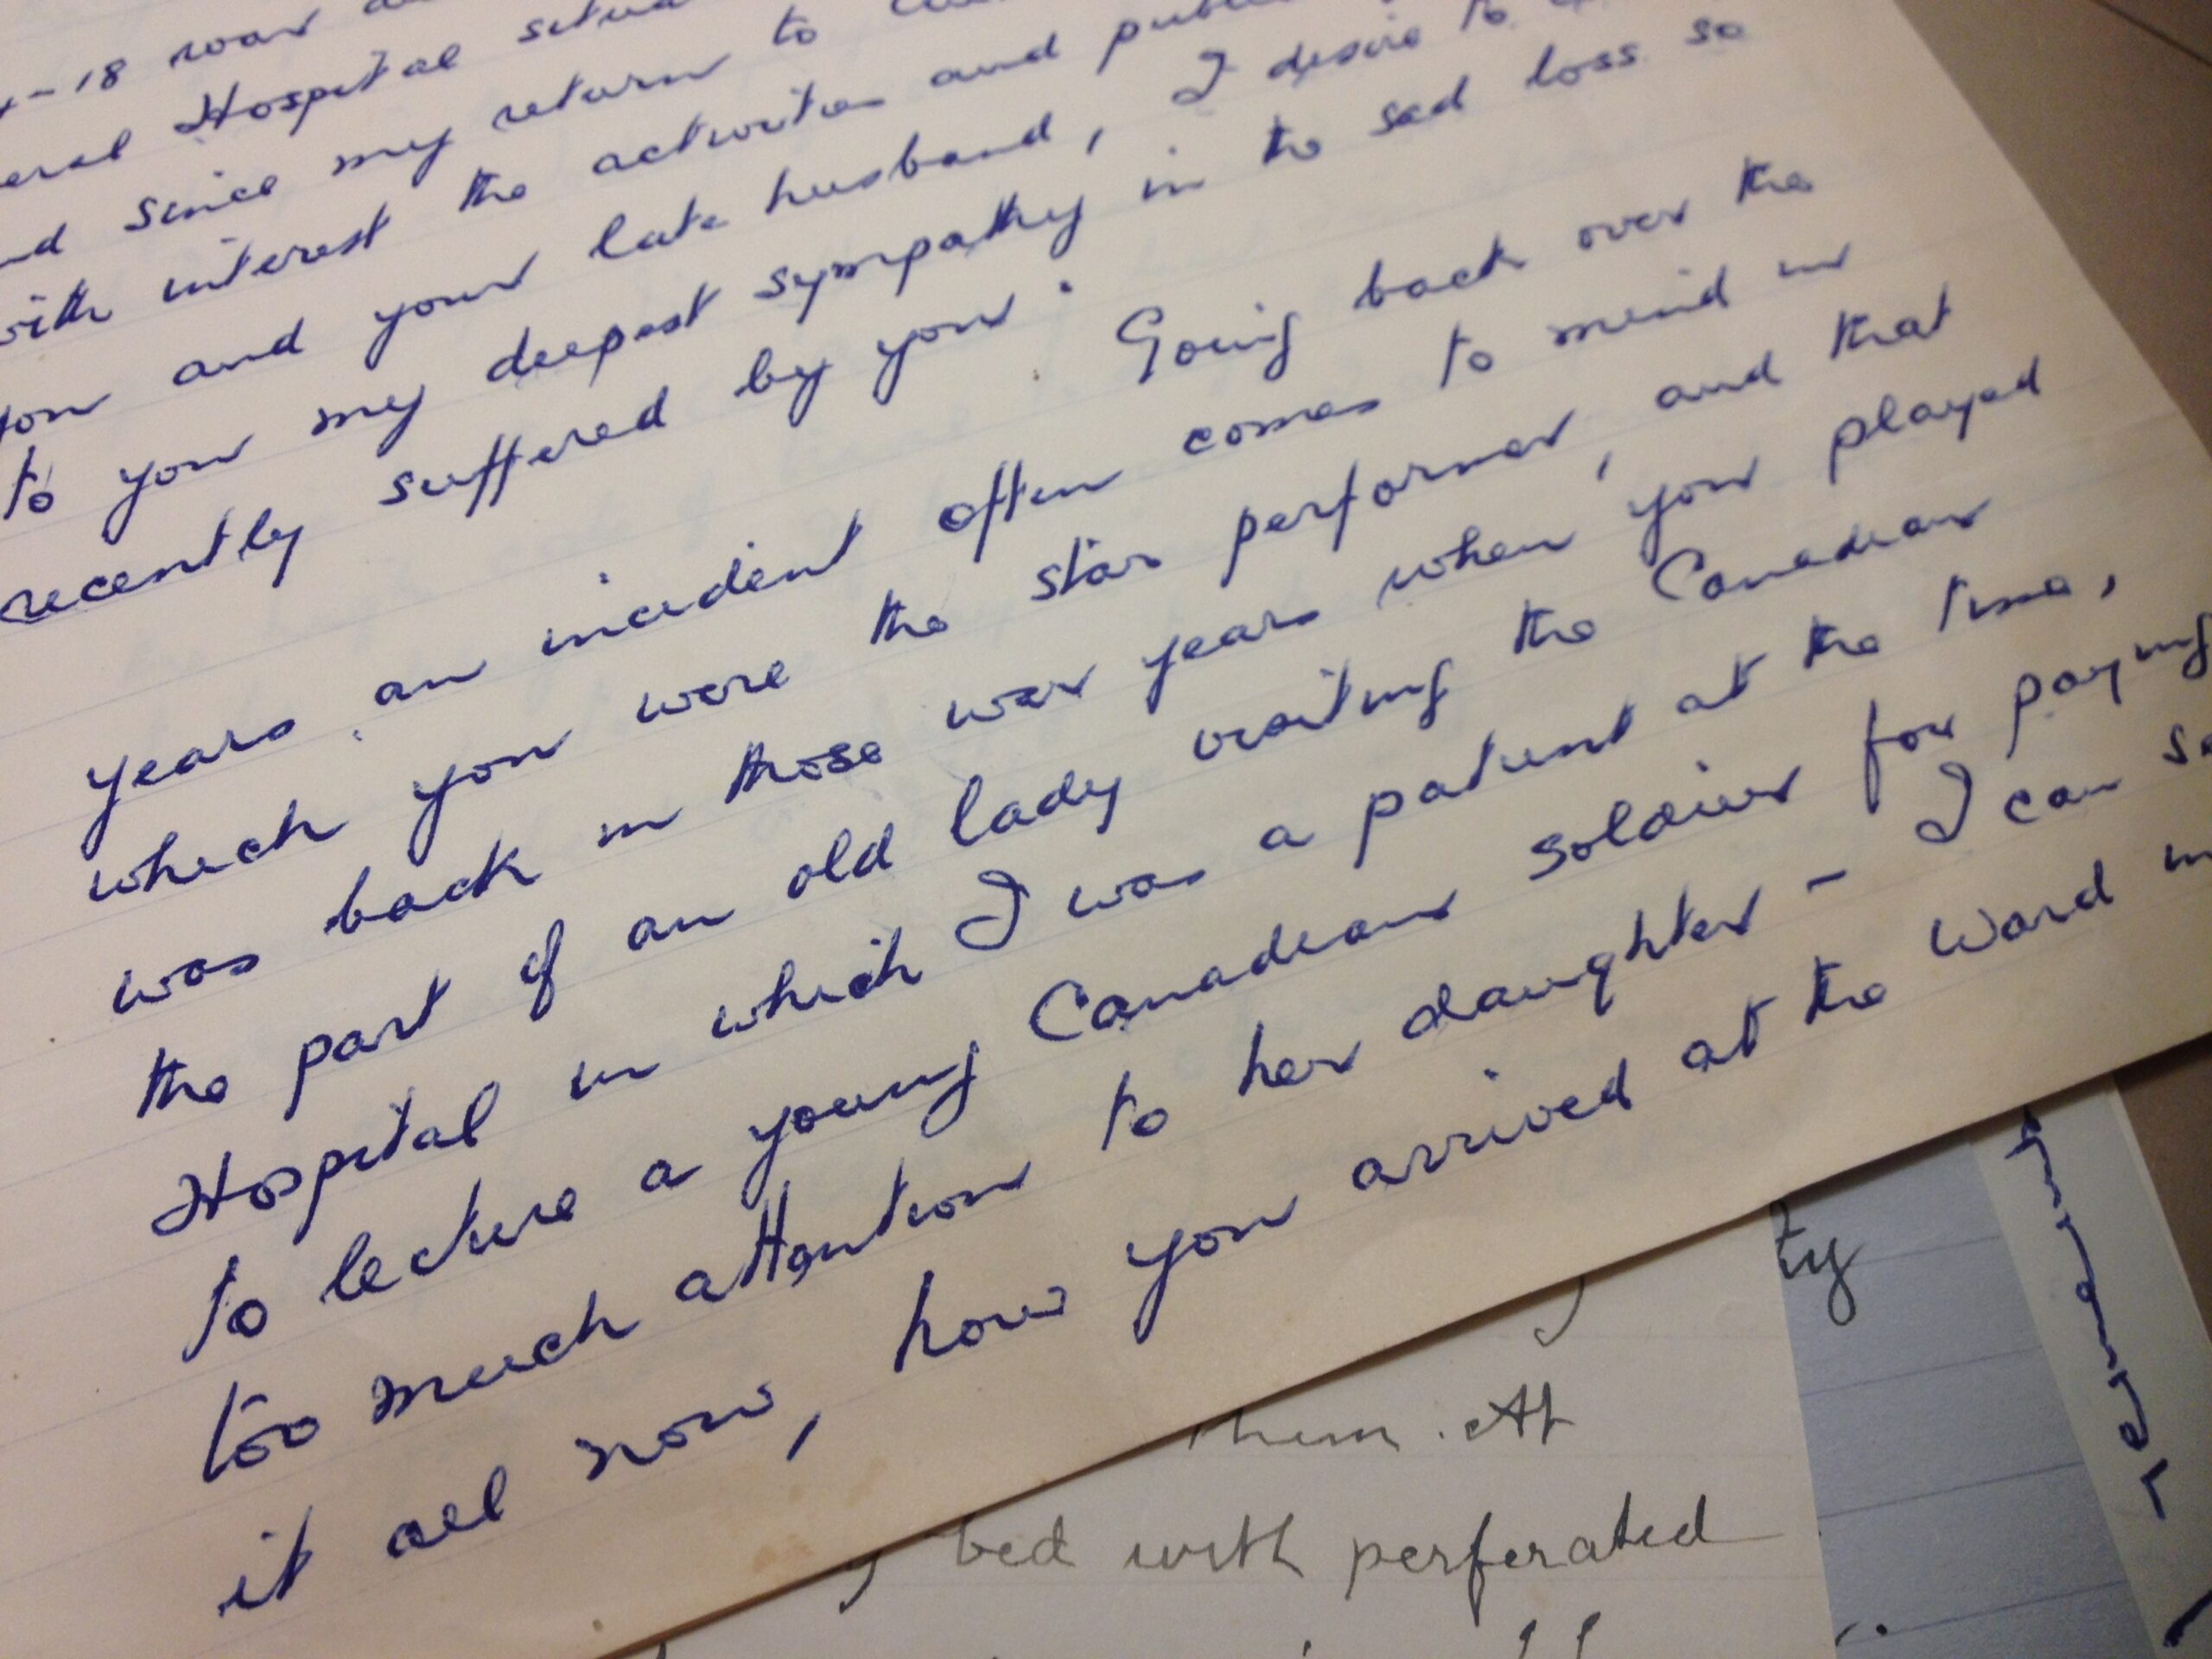 -18 war
Hospital
since my return to
with interest the activities and
and your late husband, I desire to
to you my deepest sympathy in the sad loss so
recently suffered by you. Going back over the
years an incident often comes to mind in
which you were the star performer, and that
was back in those war years when you played
the part of an old lady visiting the Canadian
Hospital in which I was a patient at the time,
to lecture a young Canadian soldier for paying
too much attention to her daughter - I can
it all now, how you arrived at the Ward
ty
them. At
bed with perforated